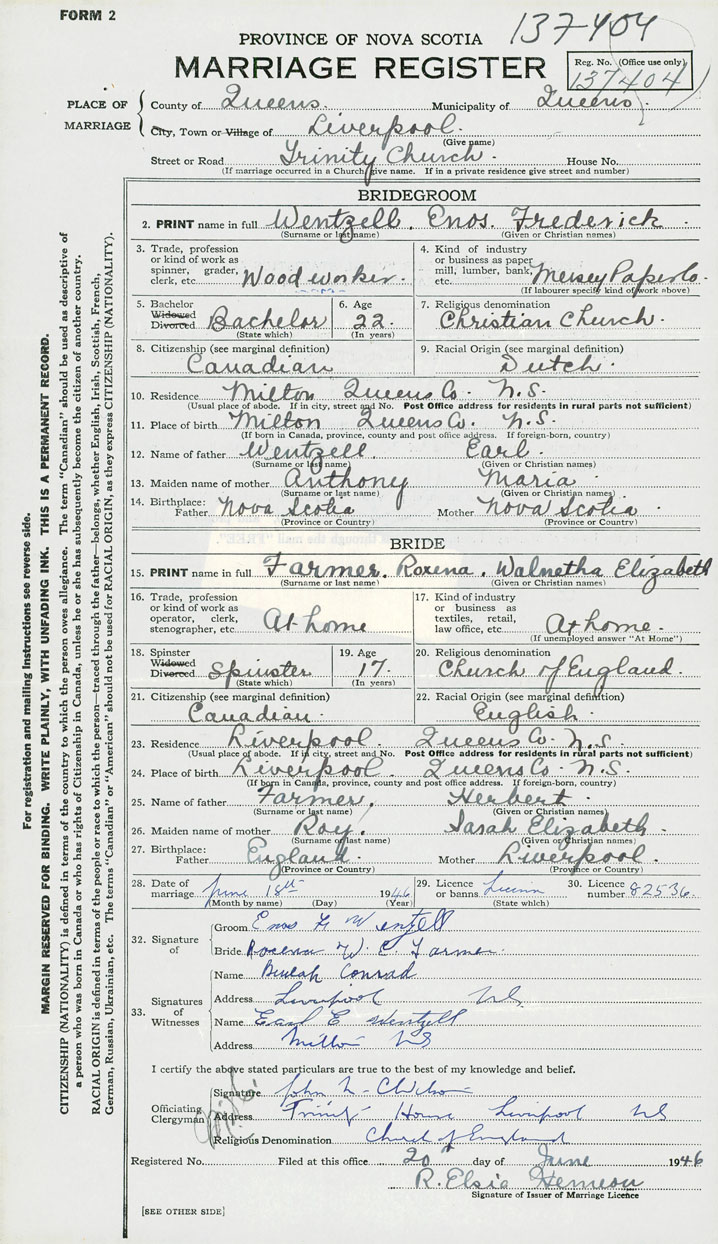 FORM 2
137404
PROVINCE OF NOVA SCOTIA
MARRIAGE REGISTER
Reg. No. (Office use only)
137404
PLACE OF MARRIAGE
County of Queens. Municipality of Queens
City, Town or Village of Liverpool.
(Give name)
Street or Road Trinity Church. House No.
(If marriage occurred in a Church give name. If in a private residence give street and number)
BRIDEGROOM
2. PRINT name in full Wentzell. Enos. Frederick.
(Surname or last name) (Given or Christian names)
3. Trade, profession or kind of work as spinner, grader, clerk, etc. Woodworker.
4. Kind of industry or business as paper mill, lumber, bank, etc. Mersey Paper Co.
(If labourer specify kind of work above)
5. Bachelor Widowed Divorced Bachelor
(State which)
6. Age 22.
(In years)
7. Religious denomination
Christian Church.
8. Citizenship (see marginal definition)
Canadian
9. Racial Origin (see marginal definition)
Dutch.
10. Residence Milton Queens Co. N.S.
(Usual place of abode. If in city, street and No. Post Office address for residents in rural parts not sufficient)
11. Place of birth Milton Queens Co. N.S.
(If born in Canada, province, county and post office address. If foreign-born, country)
12. Name of father Wentzell Earl.
(Surname or last name) (Given or Christian names)
13. Maiden name of mother Anthony Maria
(Surname or last name) (Given or Christian names)
14. Birthplace: Father Nova Scotia Mother Nova Scotia
(Province or Country) (Province or Country)
BRIDE
15. PRINT name in full Farmer. Roxena. Walnetha Elizabeth
(Surname or last name) (Given or Christian names)
16. Trade, profession or kind of work as operator, clerk, stenographer, etc. At home
17. Kind of industry or business as textiles, retail, law office, etc. At home.
(If unemployed answer "At Home")
18. Spinster Widowed Divorced Spinster
(State which)
19. Age 17.
(In years)
20. Religious denomination
Church of England.
21. Citizenship (see marginal definition)
Canadian.
22. Racial Origin (see marginal definition)
English.
23. Residence Liverpool. Queens Co. N.S.
(Usual place of abode. If in city, street and No. Post Office address for residents in rural parts not sufficient)
24. Place of birth Liverpool. Queens Co. N.S.
(If born in Canada, province, county and post office address. If foreign-born, country)
25. Name of father Farmer. Herbert.
(Surname or last name) (Given or Christian names)
26. Maiden name of mother Roy. Sarah Elizabeth
(Surname or last name) (Given or Christian names)
27. Birthplace: Father England. Mother Liverpool.
(Province or Country) (Province or Country)
28. Date of marriage June 18th 1946
(Month by name) (Day) (Year)
29. Licence or banns
(State which)
30. Licence number 82536.
32. Signature of
Groom Enos F Wentzell
Bride Roxena W. E. Farmer.
33. Signatures of Witnesses
Name Beulah Conrad
Address Liverpool NS.
Name Earl E Wentzell
Address Milton NS
I certify the above stated particulars are true to the best of my knowledge and belief.
Officiating Clergyman
Signature John
Address Trinity House Liverpool NS
Religious Denomination Church of England
Registered No. Filed at this office 20th day of June 1946
R. Elsie Hemeon
Signature of Issuer of Marriage Licence
[SEE OTHER SIDE]
For registration and mailing instructions see reverse side.
MARGIN RESERVED FOR BINDING. WRITE PLAINLY, WITH UNFADING INK. THIS IS A PERMANENT RECORD.
CITIZENSHIP (NATIONALITY) is defined in terms of the country to which the person owes allegiance. The term "Canadian" should be used as descriptive of
a person who was born in Canada or who has rights of Citizenship in Canada, unless he or she has subsequently become the citizen of another country.
RACIAL ORIGIN is defined in terms of the people or race to which the person—traced through the father—belongs, whether English, Irish, Scottish, French,
German, Russian, Ukrainian, etc. The terms "Canadian" or "American" should not be used for RACIAL ORIGIN, as they express CITIZENSHIP (NATIONALITY).